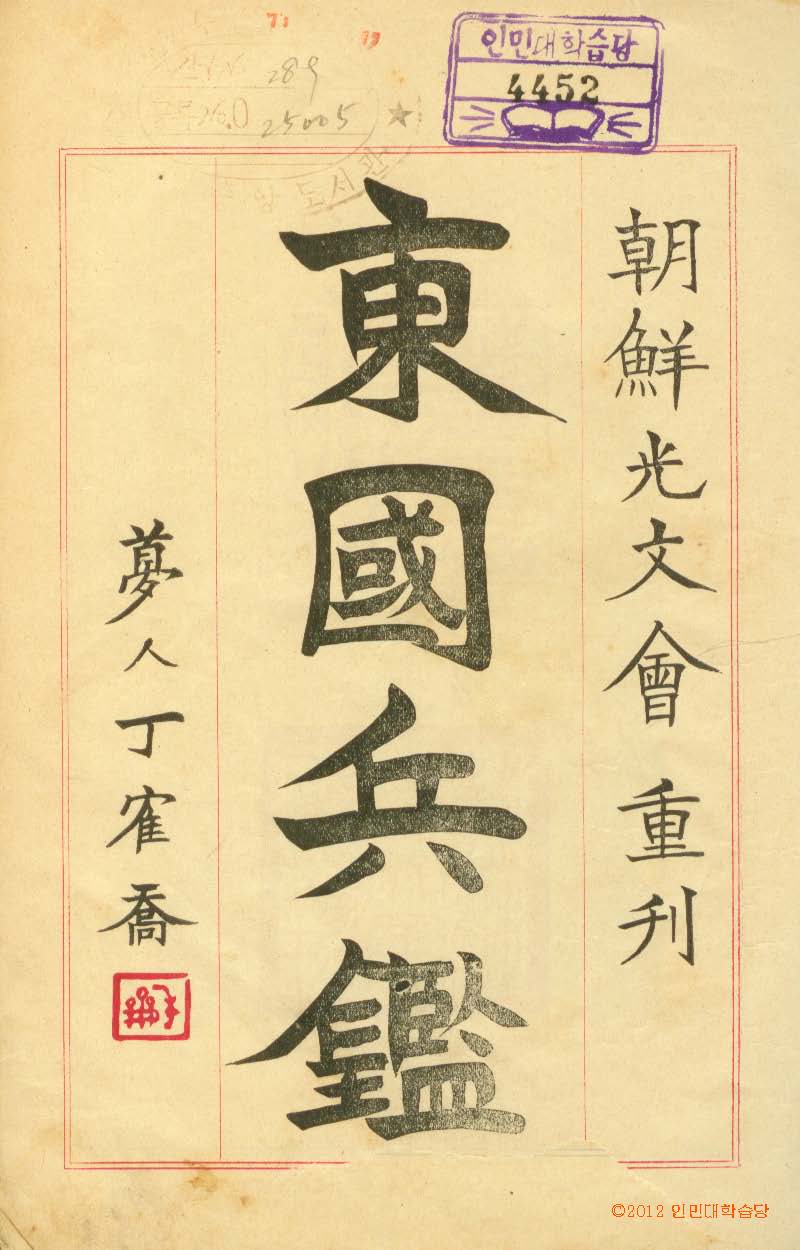 인민대학습당
4452
289
25005
도서관
朝鮮光文會 重刊
東國兵鑑
夢人丁寉喬
©2012 인민대학습당